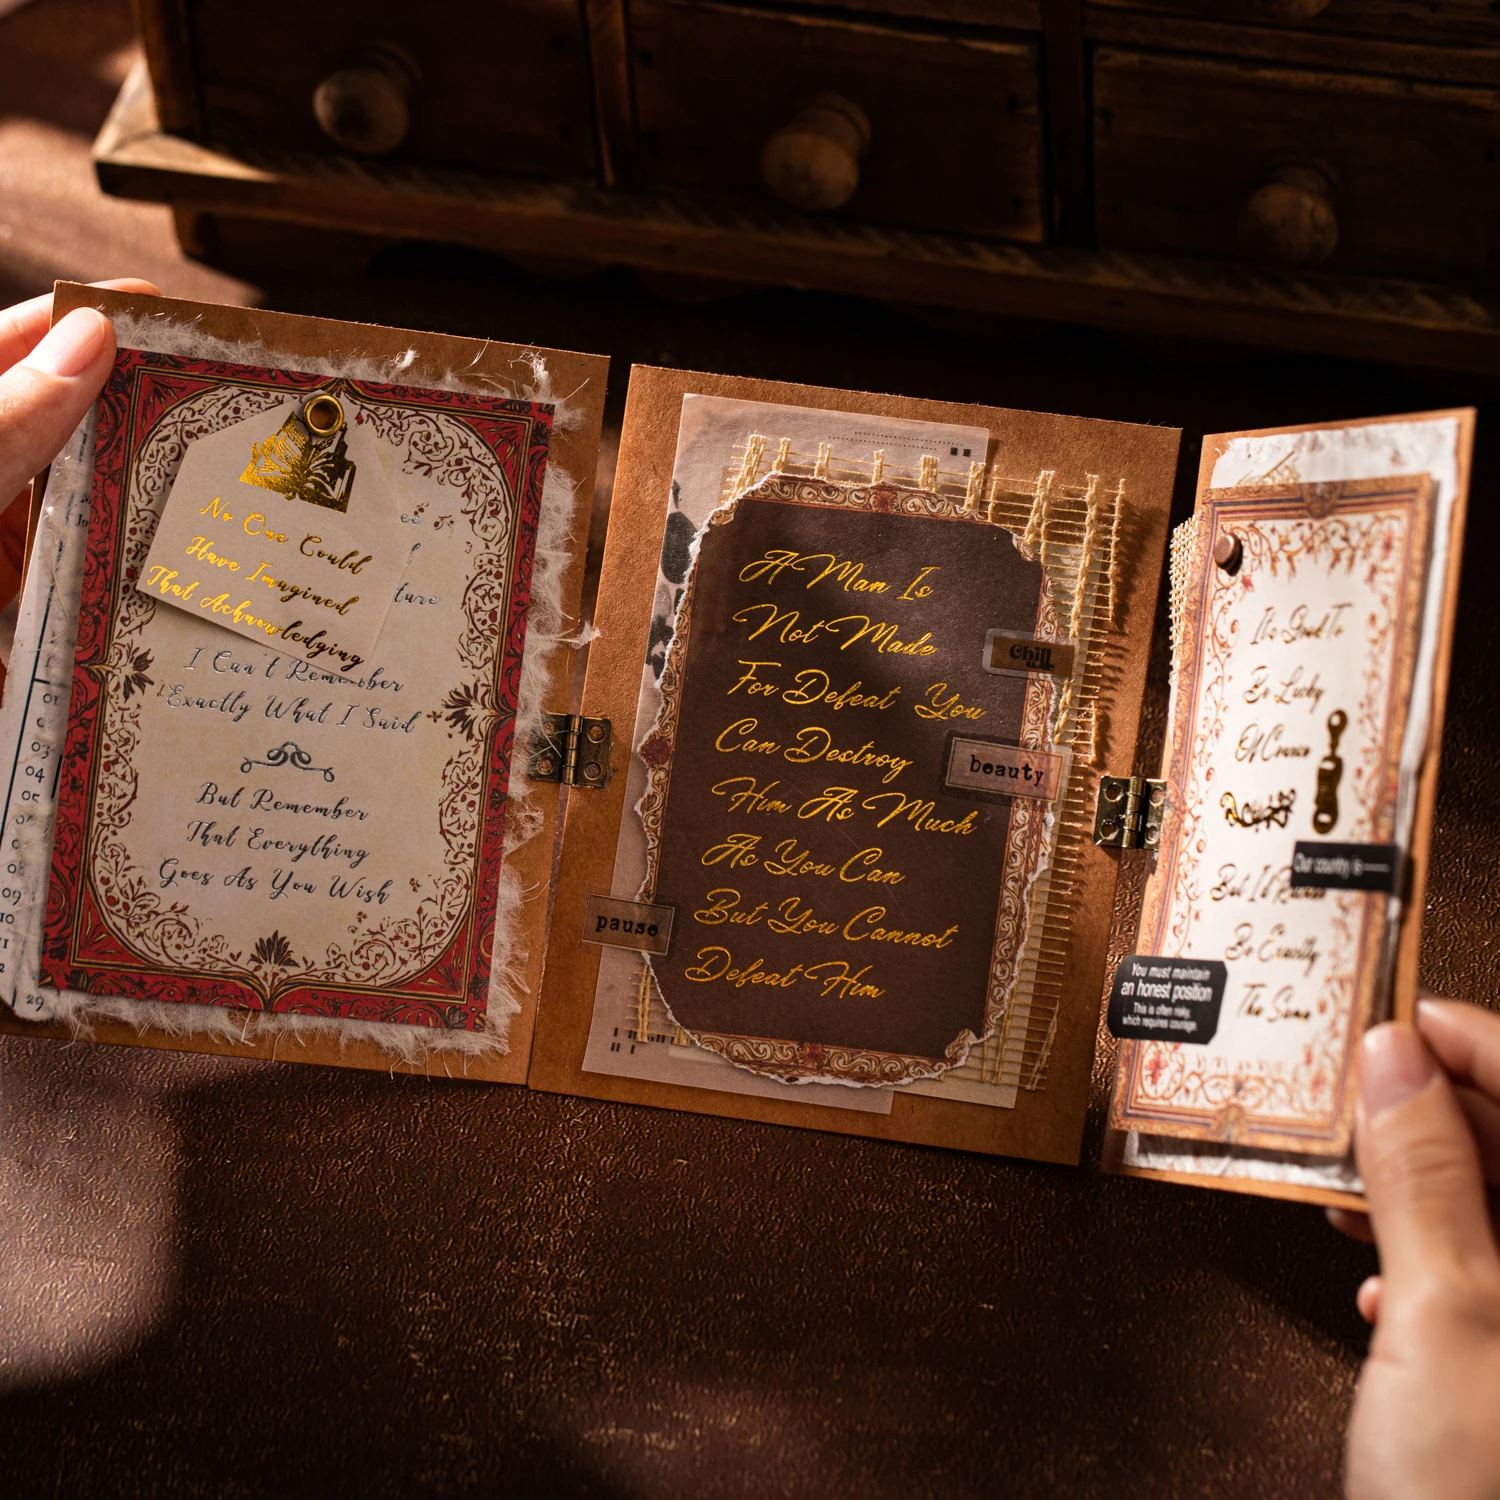 No One Could
Have Imagined
That Acknowledging
ture
I Can't Remember
Exactly What I Said
But Remember
That Everything
Goes As You Wish
03
04
09
10
11
29
A Man Is
Not Made
For Defeat You
Can Destroy
Him As Much
As You Can
But You Cannot
Defeat Him
Chill
beauty
pause
It's Good To
Be Lucky
Of Course
But I'd Rather
Be Exactly
The Same
Our country is
You must maintain
an honest position
This is often risky,
which requires courage.